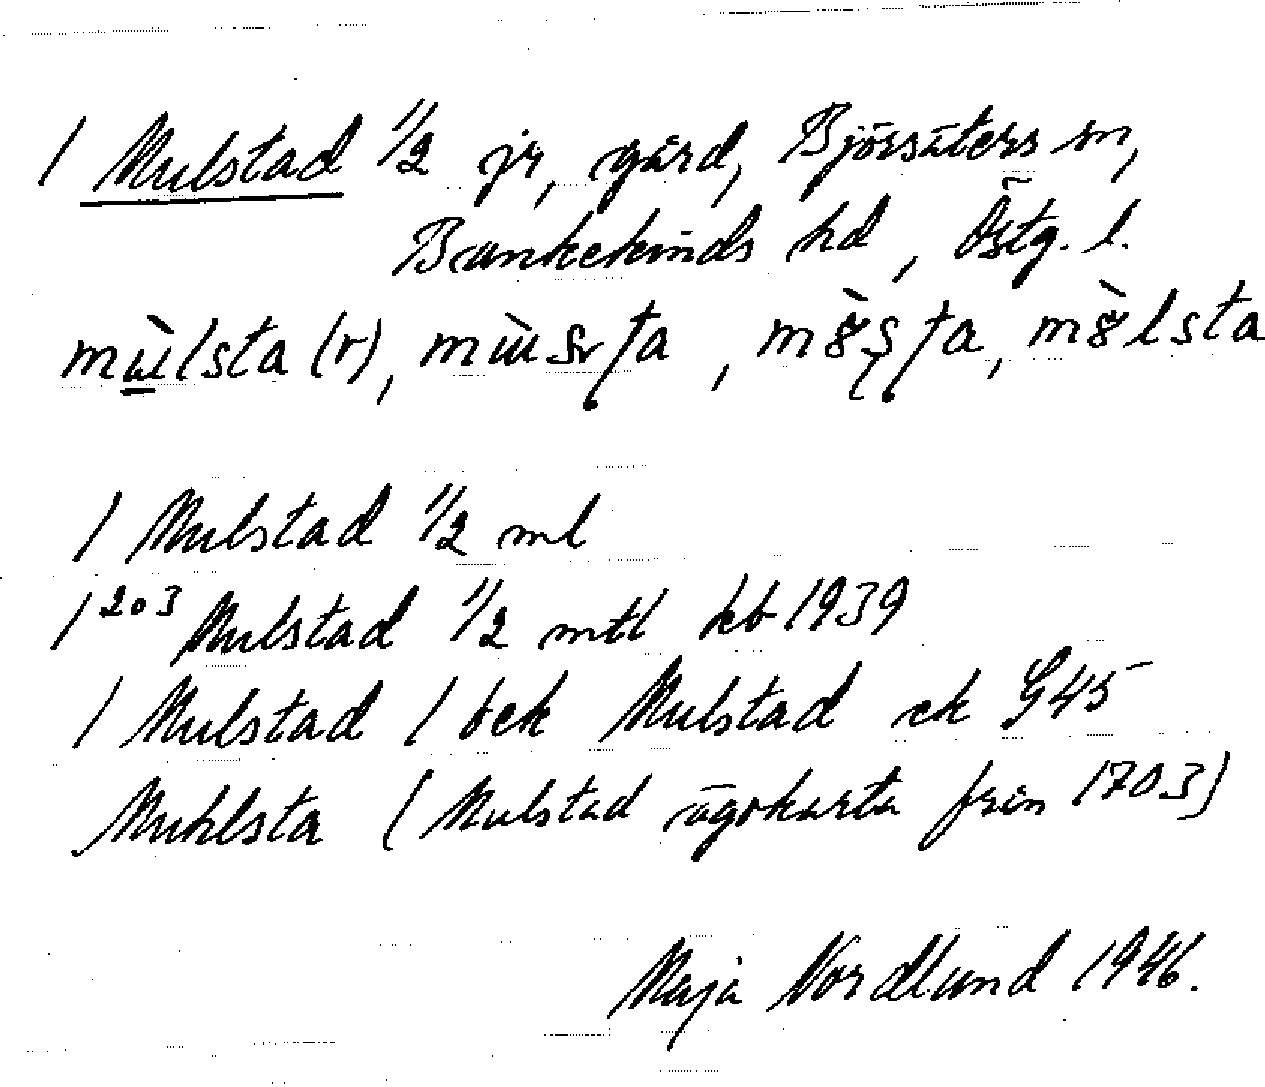 1 Mulstad 1/2 jr, gård, Björsäters sn,
Bankekinds hd, Östg. l.
mùlsta (r),
1 Mulstad 1/2 ml
1 203 Mulstad 1/2 mtl kb 1939
1 Mulstad 1 bek Mulstad ek G45
Muhlsta (Mulstad ägokarta från 1703)
Maja Nordlund 1946.